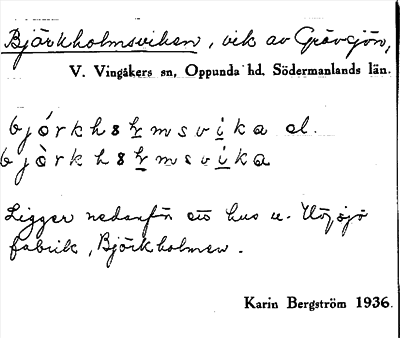 Björkholmsviken, vik av Grävsjön,
V. Vingåkers sn, Oppunda hd. Södermanlands län.
bjórkh8ḻmsvi̱ka el.
bjòrkh8ḻmsvi̱ka
Ligger nedanför hus u. Högsjö
fabrik, Björkholmen.
Karin Bergström 1936.